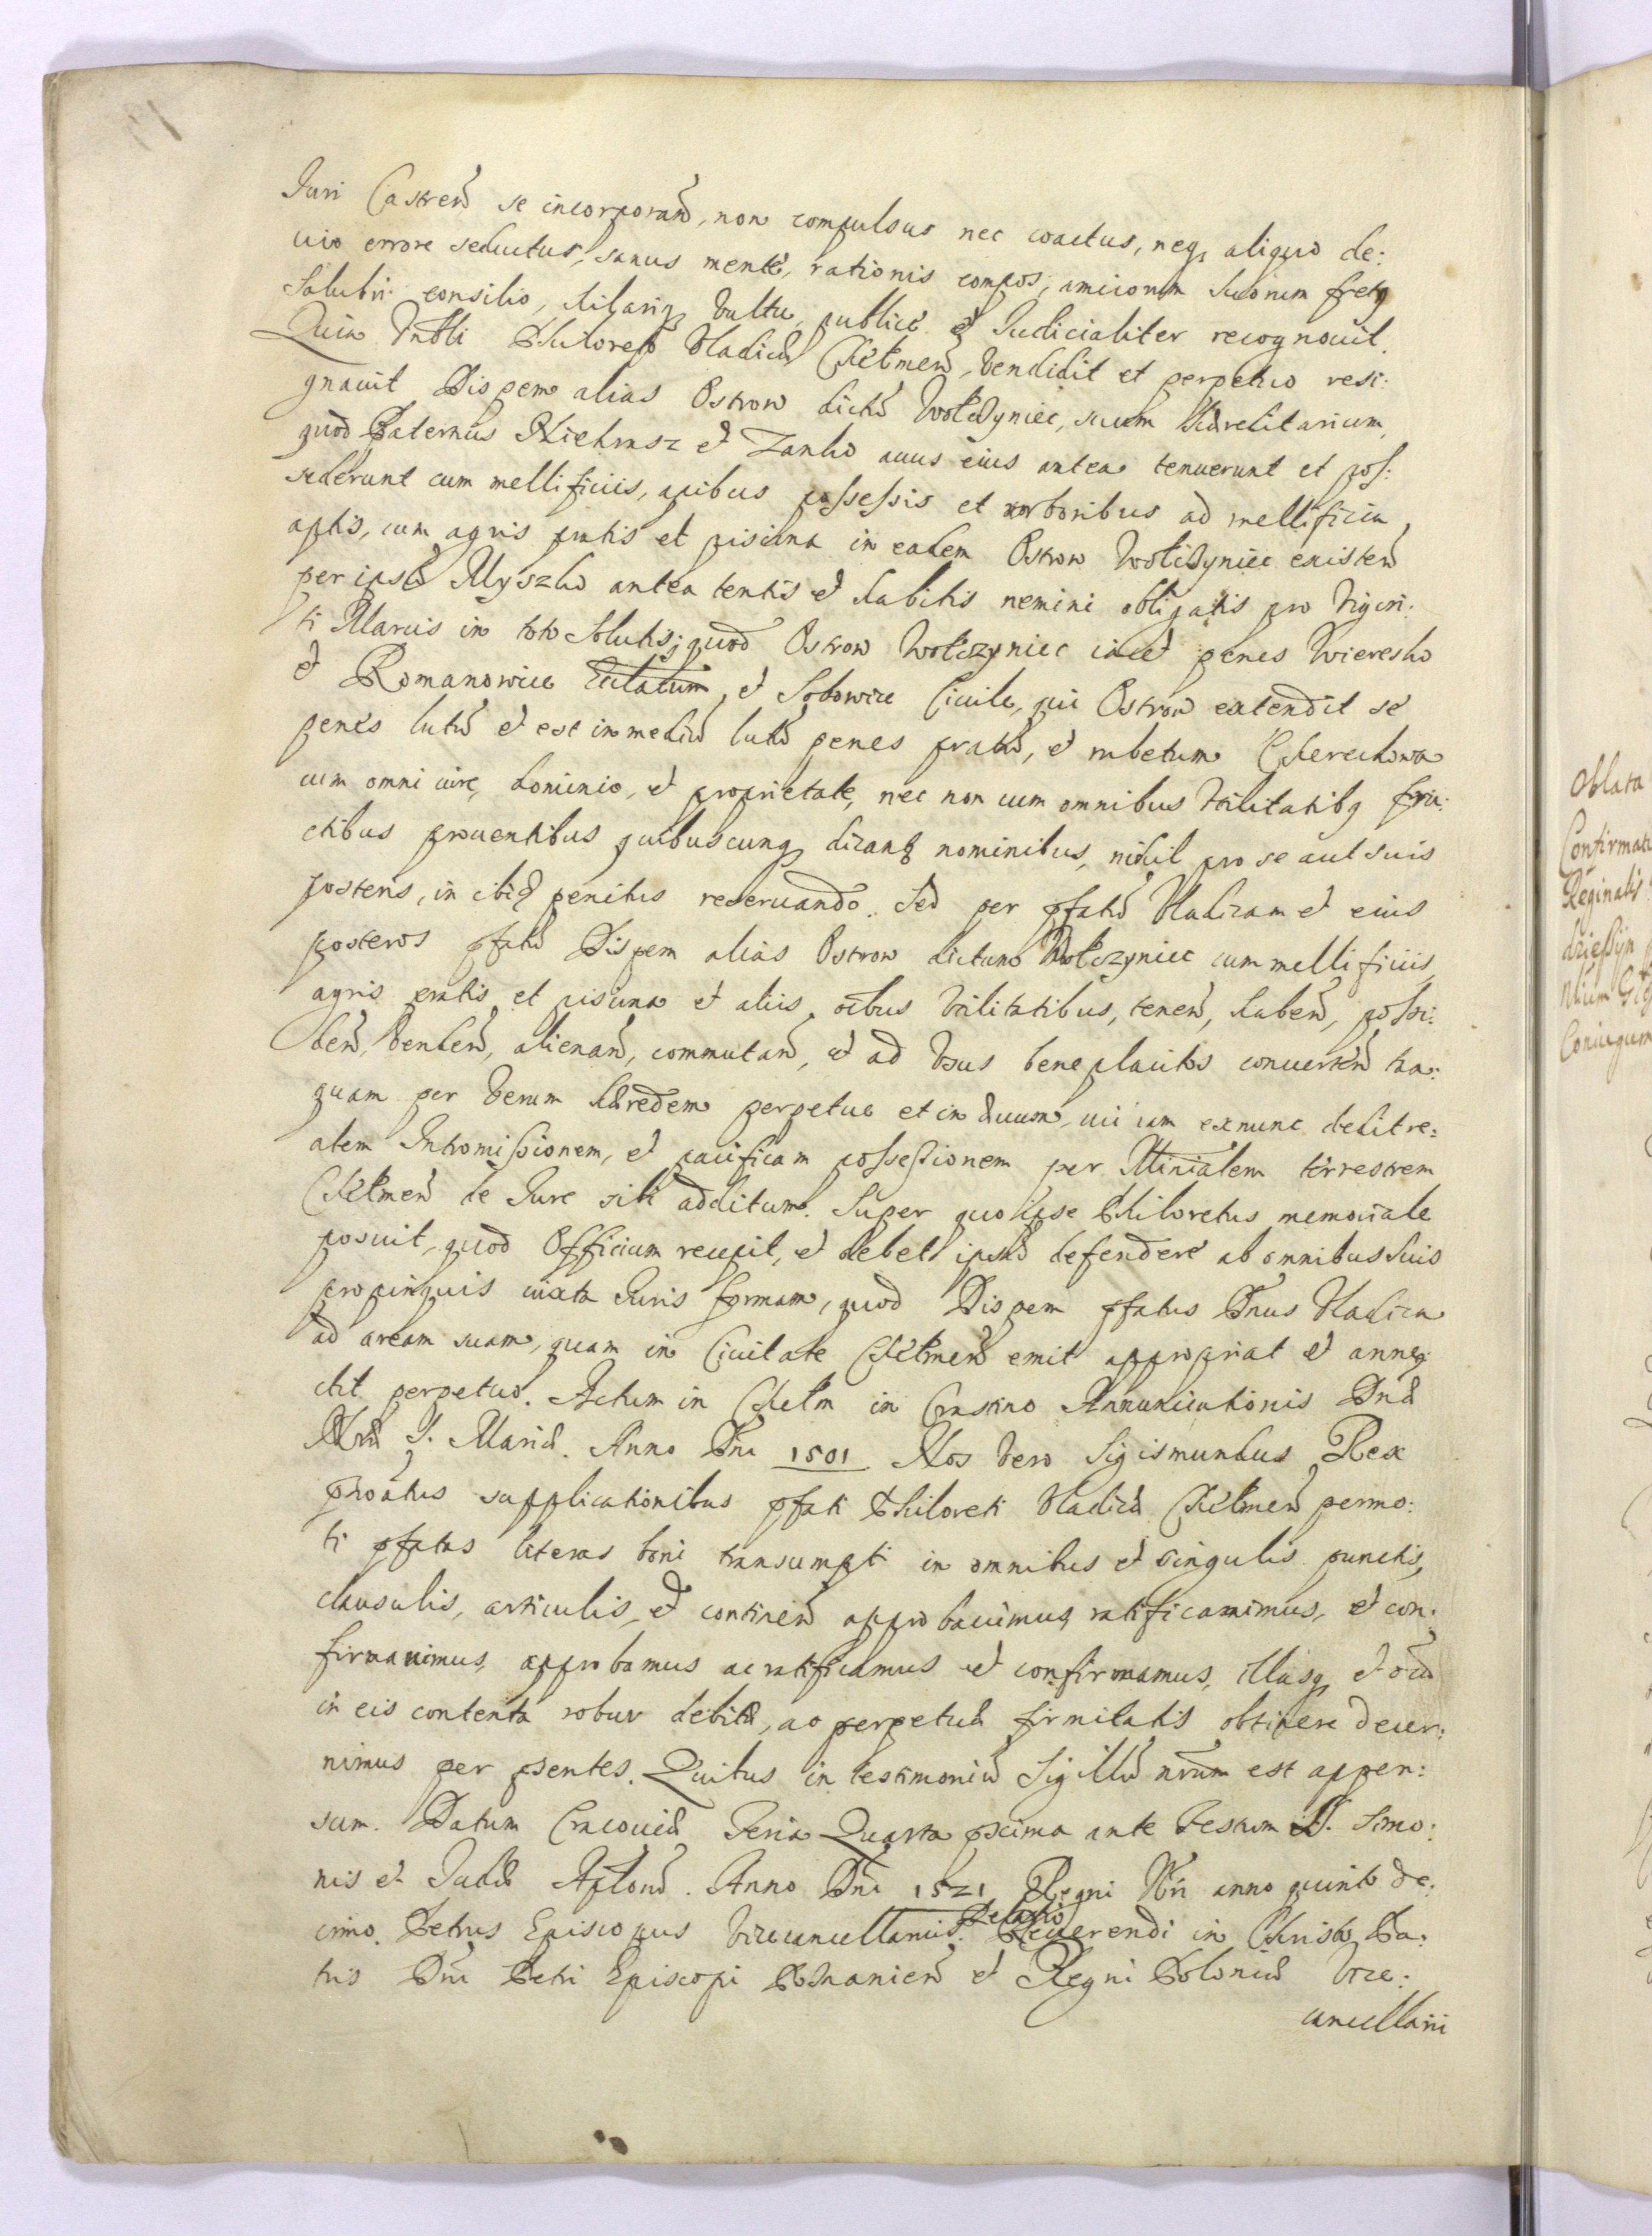 Juri Castren̄ se incorporan̄, non compulsus nec coactus, neq₃ aliquo de:
uio errore seductus, sanus mente, rationis compos, amicorum suorum fretq
Salubri consilio, hilariq₃ vultu, publicè et Judicialiter recognouit.
Quia Vnbli Philoreto Vladicæ Chełmen̄, vendidit et perpetuo resi:
gnauit Dispem alias Ostrow dictū Wołczyniec, suum hæreditarium,
quod Paternus Niehrusz et Zanko auus eius antea tenuerunt et pos:
sederunt cum mellificiis, apibus possessis et arboribus ad mellificia
aptis, cum agris pratis et piscina in eadem Ostrow Wołczyniec existen̄
per ipsū Myszko antea tentis et habitis nemini obligatis pro viginti:
ti Marcis in toto Solutis; quod Ostrow Wołczyniec iacet penes Wieresko
et Romanowice, et Sobowice Ciuile, qui Ostrow extendit se
penes lutū et est in mediū lutū penes pratū, et rubetum Cherechowa
cum omni iure, dominio, et proprietate, nec non cum omnibus vtilitatibq fru:
ctibus prouentibus quibuscunq₃ dicantr nominibus, nihil pro se aut suis
posteris, in ibid̄ penitus reseruando. Sed per pfatū Vladicam et eius
posteros pfatū Dispem alias Ostrow dictum Wołczyniec cum mellificiis,
agris pratis et piscina et aliis oibus vtilitatibus, tenen̄, haben̄, possi:
den̄, venden̄, alienan̄, commutan̄, et ad vsus beneplacitos conuerten̄ tan:
quam per verum hæredem perpetuo et in æuum, cui iam exnunc dedit re:
alem Intromissionem, et pacificam possessionem per Minīalem terrestrem
Chełmen̄ de Jure sibi additum. Super quo ipse Philoretus memoriale
posuit, quod Officium recepit, et debet ipsū defendere ab omnibus suis
propinquis iuxta Juris formam, quod Dispem pfatus Dnus Vladica
ad aream suam, quam in Ciuitate Chełmen̄ emit appropriat et anne
ctit perpetuo. Actum in Chełm in Crastino Annunciationis Dnæ
Nræ S. Mariæ. Anno Dni 1501 Nos vero Sigismundus Rex
pnoātus supplicationibus pfati Philoreti Vladicæ Chełmen̄ permo:
ti pfatas literas boni transumpti in omnibus et singulis punctis,
clausulis, articulis, et continen̄ approbauimus ratificauimus, et con:
firmauimus, approbamus ac ratificamus et confirmamus, illasq₃ et oīa
in eis contenta robur debitæ, ac perpetuæ firmitatis obtinere decer:
nimus per psentes. Quibus in testimoniū Sigillū nrum est appen:
sum. Datum Cracouiæ Feria Quarta pxima ante Festum S. Simo:
nis et Judæ Aplorū. Anno Dni 1521 Regni Nri anno quinto de:
cimo. Petrus Episcopus Vicecancellarius. Relatio Reuerendi in Christo Pa:
tris Dni Petri Episcopi Posnanien̄ et Regni Poloniæ Vice:
cancellarii
Oblata
Confirmati
Reginalis
Coniugum